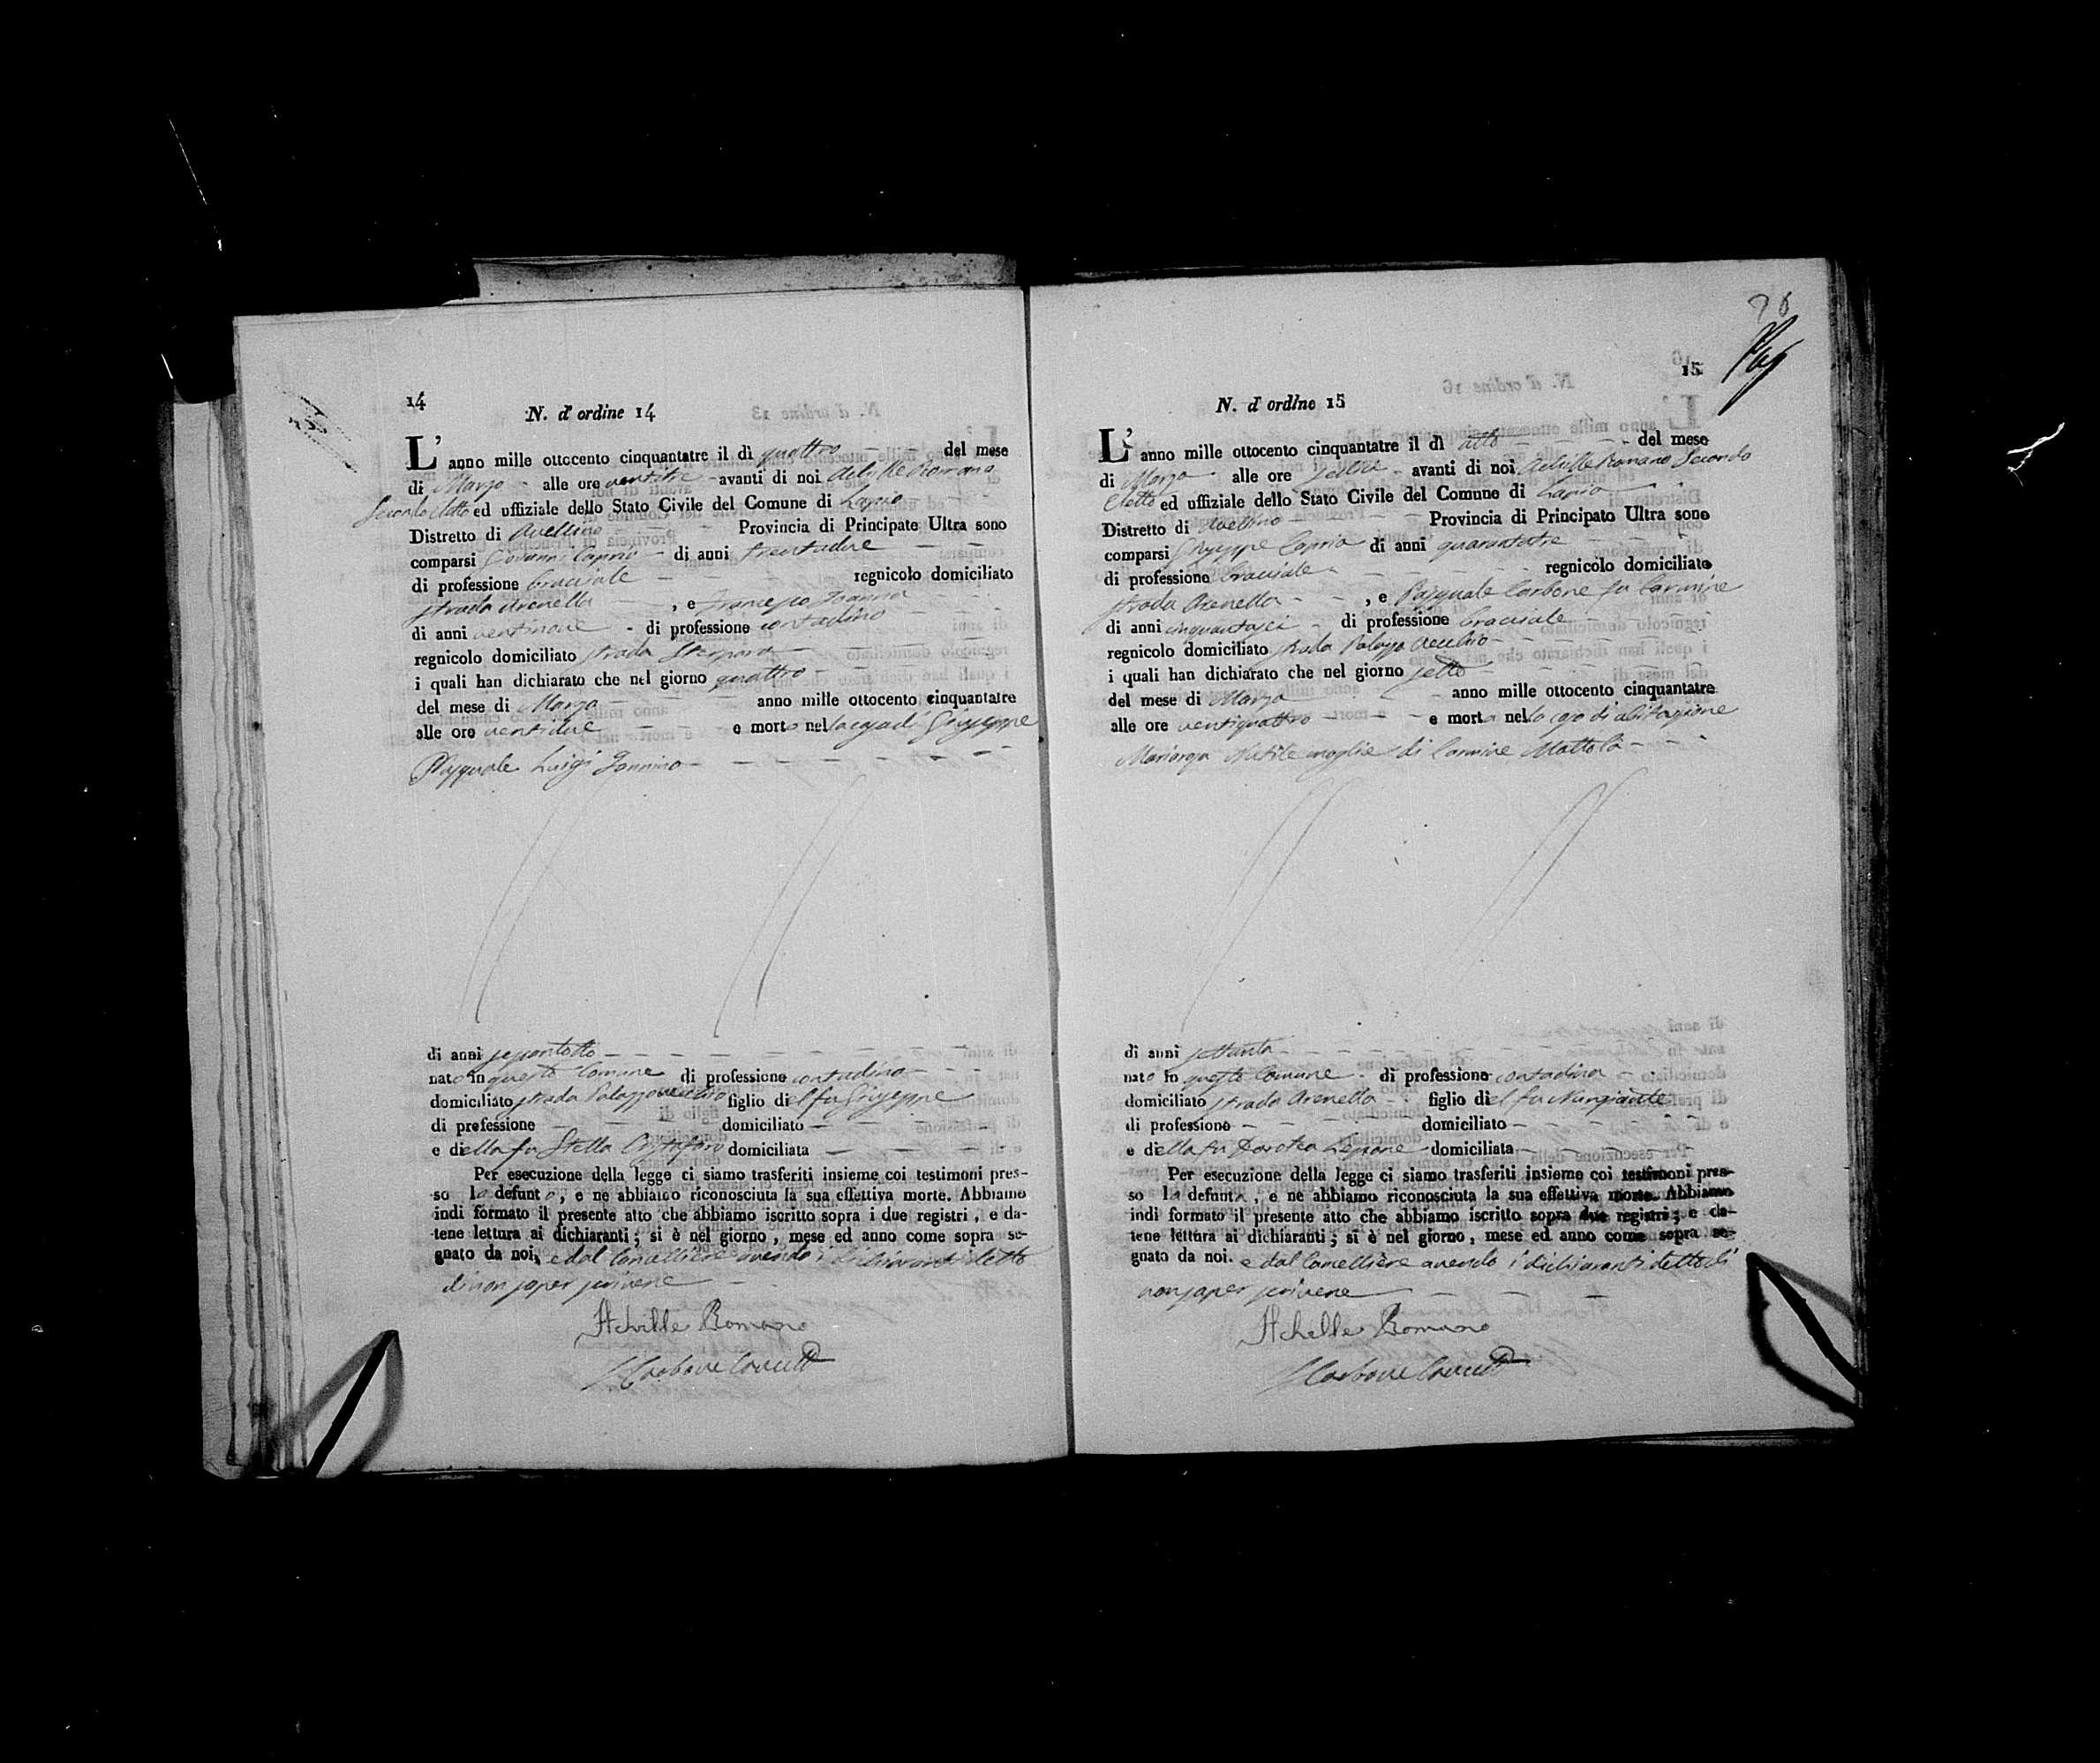 14
N. d' ordine 14
L' anno mille ottocento cinquantatre il dì quattro del mese
di Marzo alle ore ventitre avanti di noi Achille Romano
Secondo eletto ed uffiziale dello Stato Civile del Comune di Lapio
Distretto di Avellino Provincia di Principato Ultra sono
comparsi Giovanni Caprio di anni trentadue
di professione bracciale regnicolo domiciliato
strada Arenella , e Francesco
di anni ventinove di professione contadino
regnicolo domiciliato strada
i quali han dichiarato che nel giorno quattro
del mese di Marzo anno mille ottocento cinquantatre
alle ore ventidue e morto nella casa di Giuseppe
Pasquale Luigi
di anni sessantotto
nato in questo Comune di professione contadino
domiciliato strada Palazzovecchio figlio del fu Giuseppe
di professione domiciliato
e della fu Stella domiciliata
Per esecuzione della legge ci siamo trasferiti insieme coi testimoni pres-
so lo defunto, e ne abbiamo riconosciuta la sua effettiva morte. Abbiamo
indi formato il presente atto che abbiamo iscritto sopra i due registri, e da-
tene lettura ai dichiaranti; si è nel giorno, mese ed anno come sopra se-
gnato da noi, e dal Cancelliere avendo i dichiaranti detto
di non saper scrivere
Achille Romano
Carbone
15
N. d' ordine 15
L' anno mille ottocento cinquantatre il dì otto del mese
di Marzo alle ore sedici avanti di noi Achille Romano Secondo
Eletto ed uffiziale dello Stato Civile del Comune di Lapio
Distretto di Avellino Provincia di Principato Ultra sono
comparsi Giuseppe Caprio di anni quarantatre
di professione bracciale regnicolo domiciliato
strada Arenella , e Pasquale Carbone fu Carmine
di anni cinquantasei di professione bracciale
regnicolo domiciliato strada Palazzo Vecchio
i quali han dichiarato che nel giorno sette
del mese di Marzo anno mille ottocento cinquantatre
alle ore ventiquattro e morta nella casa di abitazione
Mariarosa moglie di Carmine Mottola
di anni settanta
nata in questo Comune di professione contadina
domiciliato strada Arenella figlio del fu Nunziante
di professione domiciliato
e della fu Dorotea domiciliata
Per esecuzione della legge ci siamo trasferiti insieme coi testimoni pres-
so la defunta, e ne abbiamo riconosciuta la sua effettiva morte. Abbiamo
indi formato il presente atto che abbiamo iscritto sopra due registri; e da-
tene lettura ai dichiaranti; si è nel giorno, mese ed anno come sopra se-
gnato da noi. e dal Cancelliere avendo i dichiaranti detto di
non saper scrivere
Achille Romano
Carbone